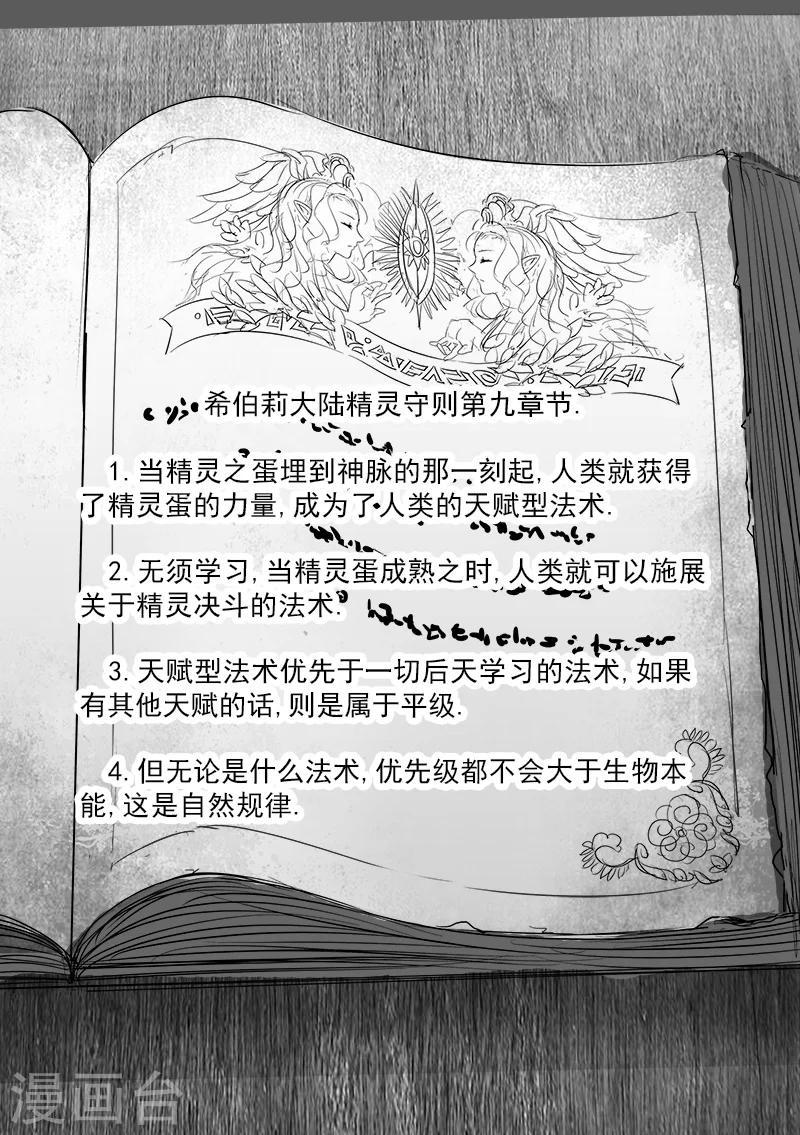 希伯莉大陆精灵守则第九章节.
1. 当精灵之蛋埋到神脉的那一刻起, 人类就获得
了精灵蛋的力量, 成为了人类的天赋型法术.
2. 无须学习, 当精灵蛋成熟之时, 人类就可以施展
关于精灵决斗的法术.
3. 天赋型法术优先于一切后天学习的法术, 如果
有其他天赋的话, 则是属于平级.
4. 但无论是什么法术, 优先级都不会大于生物本
能, 这是自然规律.
漫画台